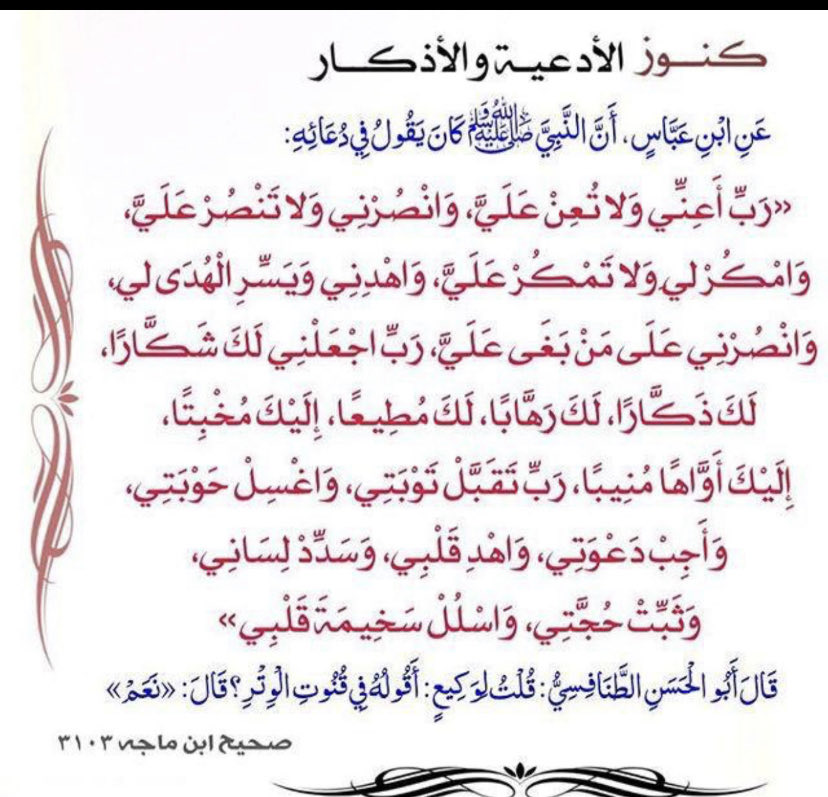 كنوز الأدعية والأذكار
عَنِ ابْنِ عَبَّاسٍ، أَنَّ النَّبِيَّ ﷺ كَانَ يَقُولُ فِي دُعَائِهِ:
«رَبِّ أَعِنِّي وَلا تُعِنْ عَلَيَّ، وَانْصُرْنِي وَلا تَنْصُرْ عَلَيَّ،
وَامْكُرْ لي وَلا تَمْكُرْ عَلَيَّ، وَاهْدِنِي وَيَسِّرِ الْهُدَى لي،
وَانْصُرْنِي عَلَى مَنْ بَغَى عَلَيَّ، رَبِّ اجْعَلْنِي لَكَ شَكَّارًا،
لَكَ ذَكَّارًا، لَكَ رَهَّابًا، لَكَ مُطِيعًا، إِلَيْكَ مُخْبِتًا،
إِلَيْكَ أَوَّاهًا مُنِيبًا، رَبِّ تَقَبَّلْ تَوْبَتِي، وَاغْسِلْ حَوْبَتِي،
وَأَجِبْ دَعْوَتِي، وَاهْدِ قَلْبِي، وَسَدِّدْ لِسَانِي،
وَثَبِّتْ حُجَّتِي، وَاسْلُلْ سَخِيمَةَ قَلْبِي»
قَالَ أَبُو الْحَسَنِ الطَّنَافِسِيُّ: قُلْتُ لِوَكِيعٍ: أَقُولُهُ فِي قُنُوتِ الْوِتْرِ؟ قَالَ: «نَعَمْ»
صحيح ابن ماجه ٣١٠٣